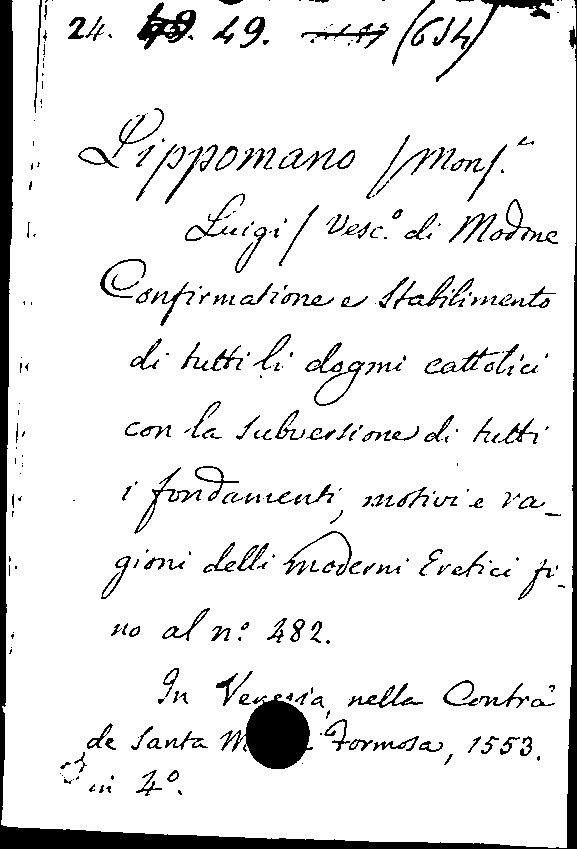 24. 49. (614)
Lippomano / Mons.r
Luigi / Vesc.o di Modone
Confirmatione e Stabilimento
di tutti li dogmi cattolici
con la subversione di tutti
i fondamenti, motivi e ra-
gioni delli moderni Eretici fi-
no al n.o 482.
In Venezia, nella Contrà
de Santa M Formosa, 1553.
in 4.o